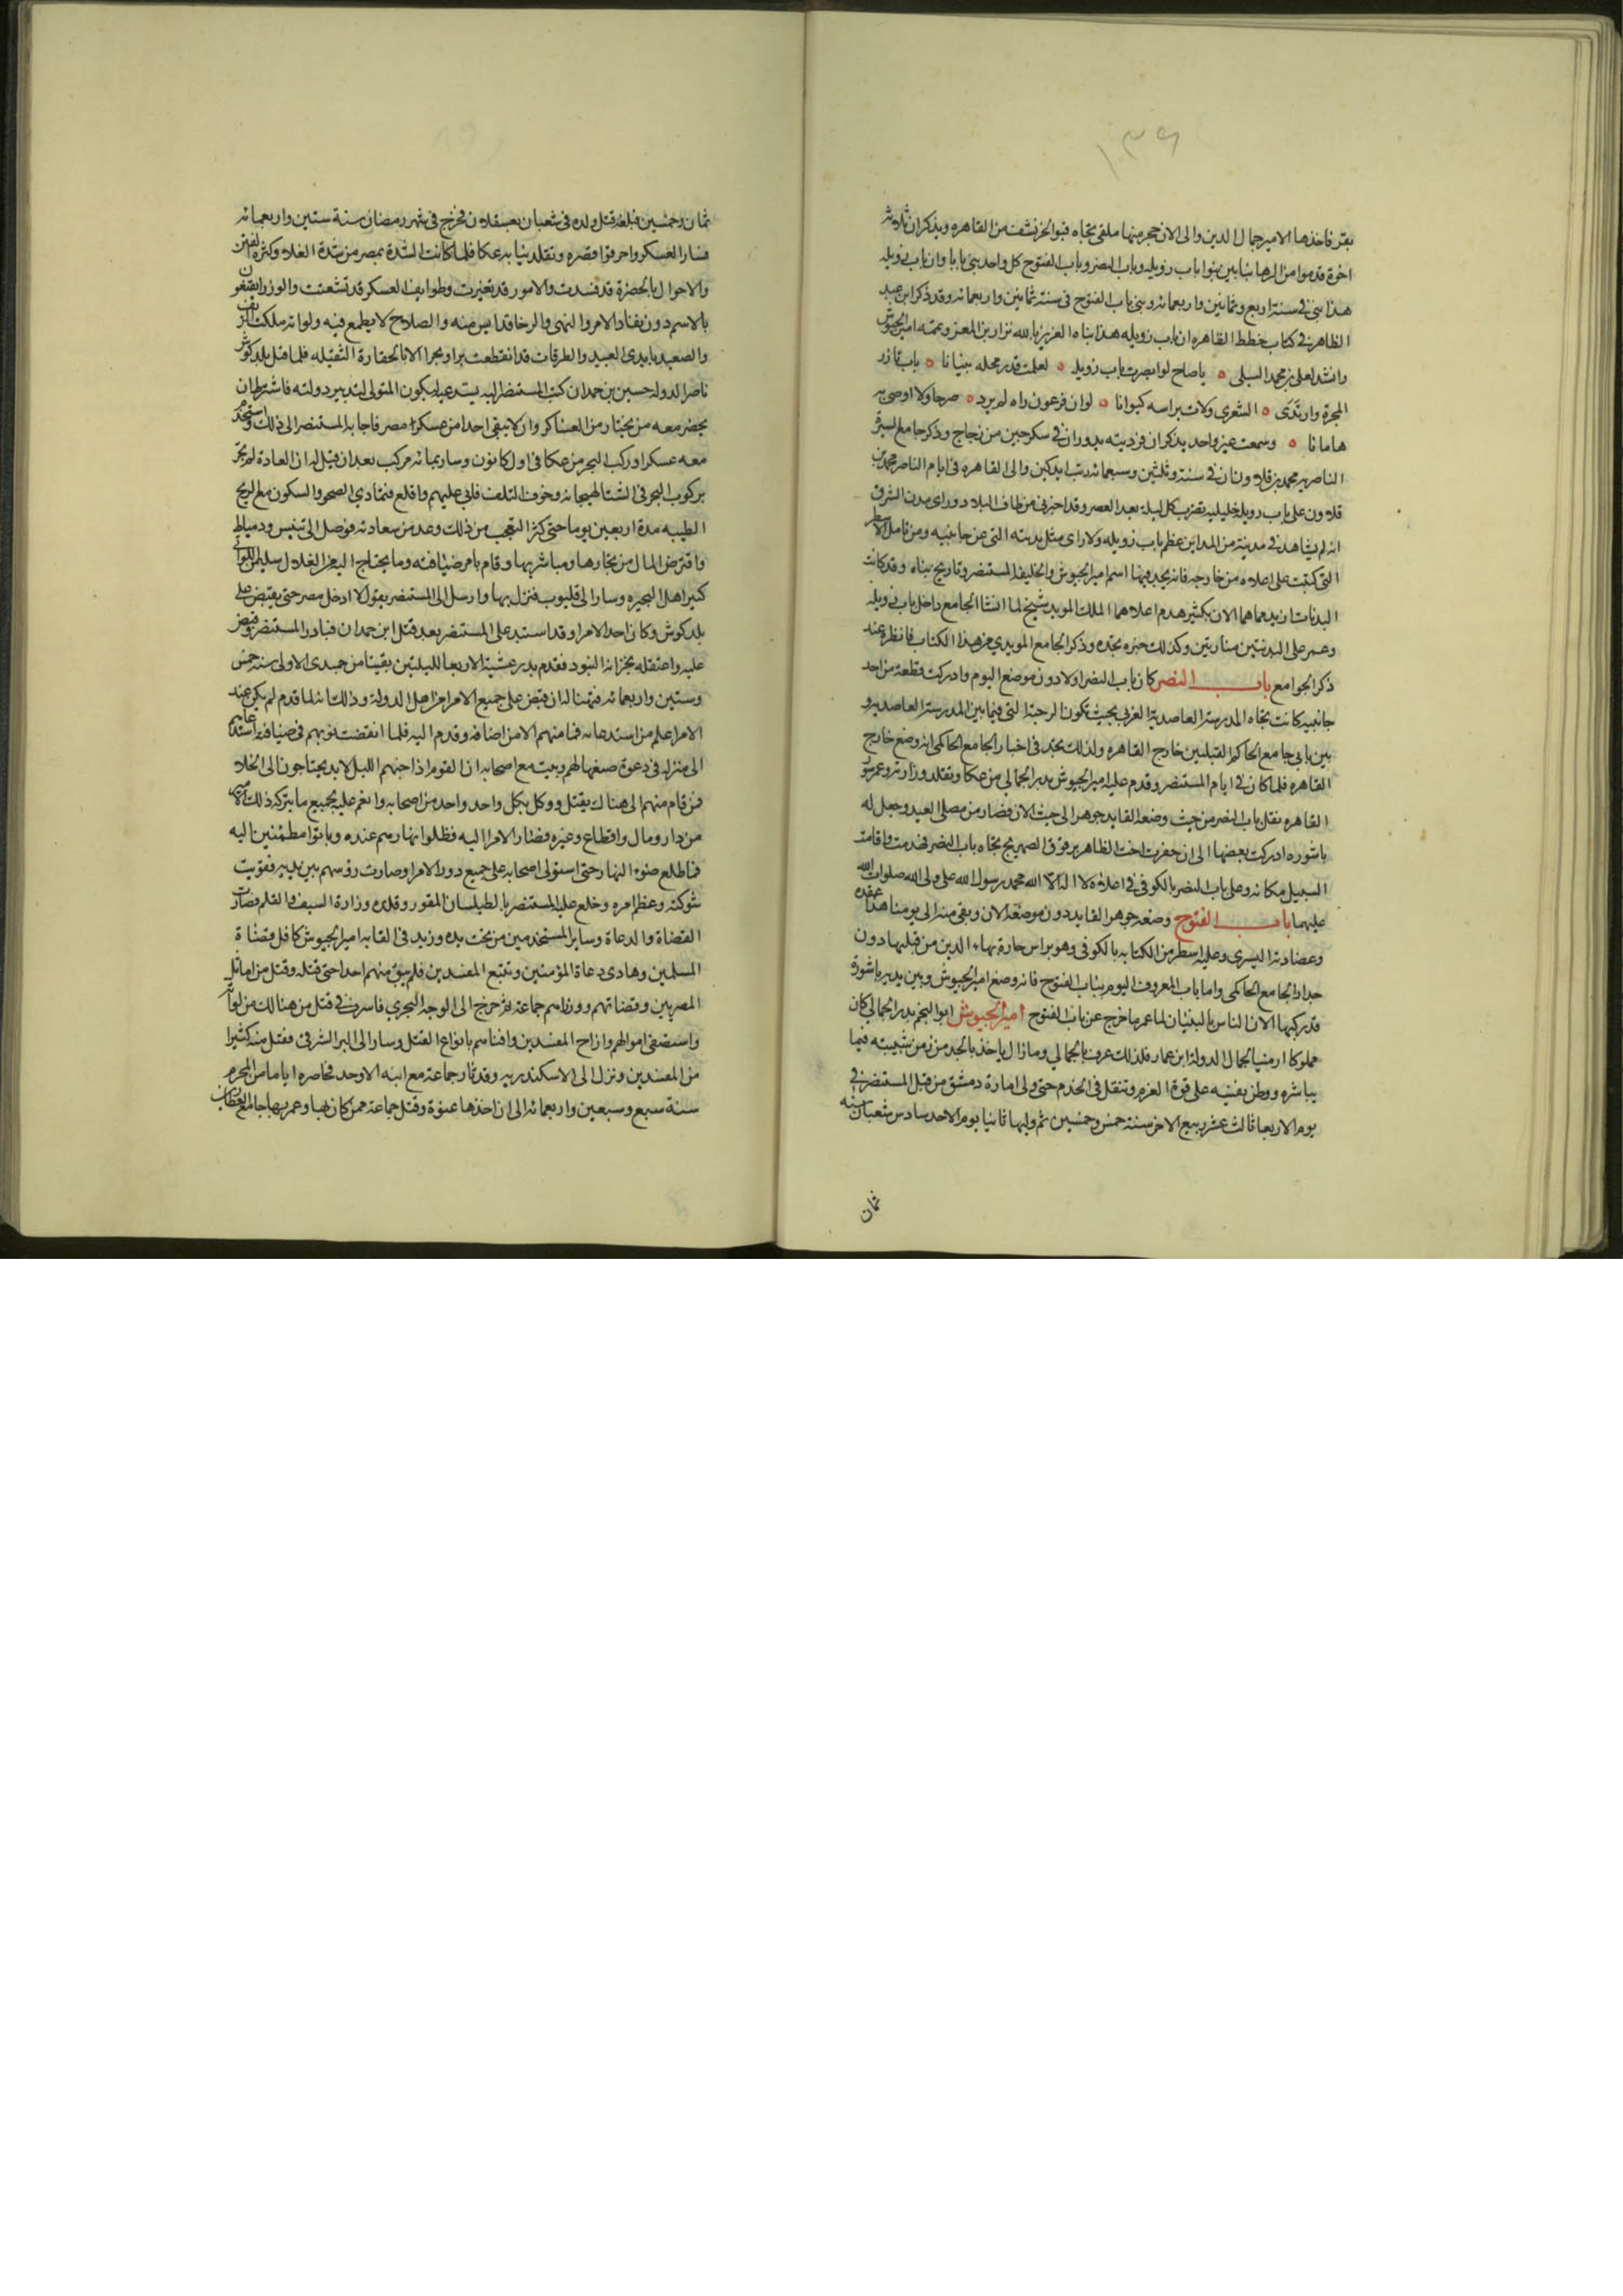 ١٣٩
بقر فاخذها الامير جمال الدين والى الان حجر منها ملقى تجاه قبو الخرنشف من القاهره ويذكر ان ثلاثة
اخوة قدموا من الرها بنايين بنوا باب زويله وباب النصر وباب الفتوح كل واحد بنى بابا وان باب زويله
هذا بنى فى سنة اربع وثمانين واربعمائه وبنى باب الفتوح فى سنة ثمانين واربعمائه وقد ذكر ابن عبد
الظاهر فى كتاب خطط القاهره ان باب زويله هذا بناه العزيز بالله نزار بن المعز وتممه امير الجيوش
وانشد لعلى بن محمد النيلى ه ياصاح لو ابصرت باب زويلة ه لعلمت قدر محله بنيانا ه باب تازر
المجرة وارتدى ه الشعرى ولاث براسه كيوانا ه لو ان فرعون راه لم يرد ه صرحا ولا اوصى به
هامانا ه وسمعت غير واحد يذكر ان فردتيه يدوران فى سكرجتين من زجاج وذكر جامع السيرة
الناصريه محمد بن قلاوون ان فى سنة وثلثين وسبعمائه رتب ايدكين والى القاهره فى ايام الناصر محمد بن
قلاون على باب زويلة خليليه تضرب كل ليلة بعد العصر وقد اخبرنى من طاف البلاد وراى مدن الشرق
انه لم يشاهد فى مدينة من المداين عظم باب زويله ولا راى مثل بدنته التى عن جانبيه ومن تامل الاسطر
التى كتبت على اعلاه من خارجه فانه يجد فيها اسم امير الجيوش والخليفة المستنصر وتاريخ بناه وقد كانت
البدنات ازيد مما هما الان بكثير هدم اعلاهما الملك المويد شيخ لما انشا الجامع داخل باب زويله
وعمر على البدنتين منارتين وكذلك خبره تجده وذكر الجامع المويدى من هذا الكتاب فانظره عند
ذكر الجوامع باب النصر كان باب النصر اولا دون موضع اليوم وادركت قطعة من احد
جانبيه كانت تجاه المدرسة العاصديه الغربى بحيث تكون الرحبة التى فيما بين المدرسة العاصديه و
بين بابى جامع الحاكم القبليين خارج القاهره ولذلك تجد فى اخبار الجامع الحاكمى انه وضع خارج
القاهره فلما كان فى ايام المستنصر وقدم عليه امير الجيوش بدر الجمالى من عكا وتقلد وزارته وعمر سور
القاهره نقل باب النصر من حيث وضعه القايد جوهر الى حيث الان فصار من مصلى العيد وجعل له
باشوره ادركت بعضها الى ان حفرت اخت الظاهر برقوق الصهريج تجاه باب النصر فهدمت واقامت
السبيل مكانه وعلى باب النصر بالكوفى فى اعلاه لا اله الا الله محمد رسول الله على ولى الله صلوات الله
عليهما باب الفتوح وضعه جوهر القايد دون موضعه الان وبقى منه الى يومنا هذا عقده
وعضادته اليسرى وعليه اسطر من الكتابه بالكوفى وهو براس حارة بهاء الدين من قبليها دون
جدار الجامع الحاكمى واما باب المعروف اليوم بباب الفتوح فانه وضع امير الجيوش وبين يديه باشورة
قد ركبها الان الناس بالبنيان لما عمر ما خرج عن باب الفتوح امير الجيوش ابو النجم بدر الجمالى كان
مملوكا ارمنيا لجمال الدولة ابن عمار فلذلك عرف بالجمالى ومازال ياخذ بالجد من زمن شبيبته فيما
يباشره ووطن نفسه على قوة العزم وتنقل فى الخدم حتى ولى امارة دمشق من قبل المستنصر فى
يوم الاربعا ثالث عشر ربيع الاخر سنة خمس وخمسين ثم وليها ثانيا يوم الاحد سادس شعبان سنه
ثمان
ثمان وخمسين فبلغه قتل ولده فى شعبان بعسقلان فخرج فى شهر رمضان سنة ستين واربعمائه
فسار العسكر واحرقوا قصره وتقلد نيابه عكا فلما كانت الشدة بمصر من شدة الغلاء وكثرة الفتن
والاحوال بالحضرة قد فسدت والامور قد تغيرت وطوايف العسكر قد تشعثت والوزرا يقنعون
بالاسم دون نفاذ الامر والنهى والرخا قد ايس منه والصلاح لا يطمع فيه ولواته ملكت الريف
والصعيد بايدى العبيد والطرقات قد انقطعت برا وبحرا الا بالخفارة الثقيله فلما قتل بلدكوش
ناصر الدوله حسين بن حمدان كتب المستنصر اليه يستدعيه ليكون المتولى لتدبير دولته فاشترط ان
يحضر معه من يختار من العساكر وان لا يبقى احدا من عسكر مصر فاجابه المستنصر الى ذلك واستخدم
معه عسكرا وركب البحر من عكا فى اول كانون وسار بمائه مركب بعد ان قيل له ان العادة لم تجر
بركوب البحر فى الشتا لهيجانه وخوف التلف فابى عليهم واقلع فتمادى الصحو والسكون مع الريح
الطيبه مدة اربعين يوما حتى كثر التعجب من ذلك وعد من سعادته فوصل الى تنيس ودمياط
واقترض المال من تجارها ومباشريها وقام بامر ضيافته وما يحتاج اليه من الغلال سليمن اللواتى
كبير اهل البحيره وسار الى قليوب فنزل بها وارسل الى المستنصر يقول لا ادخل مصر حتى يقبض على
بلدكوش وكان احد الامرا وقد استبد على المستنصر بعد قتل ابن حمدان فبادر المستنصر وقبض
عليه واعتقله بخزانه البنود فقدم بدر عشية الاربعا لليلتين بقيتا من جمدى الاولى سنه خمس
وستين واربعمائه فتهيا له ان قبض على جميع الامرا من اهل الدولة وذلك انه لما قدم لم يكن عند
الامرا علم من استدعائه فما منهم الا من اضافه وقدم اليه فلما انقضت نوبهم فى ضيافته استدعاهم
الى منزله فى دعوة صنعها لهم وبيت مع اصحابه ان القوم اذا جنهم الليل لابد يحتاجون الى الخلا
فمن قام منهم الى هناك يقتل ووكل بكل واحد واحد من اصحابه وانعم عليه بجميع ما يتركه ذلك الامير
من دار ومال واقطاع وغيره فصار الامرا اليه فظلوا نهارهم عنده وباتوا مطمئنين اليه
فما طلع ضوء النهار حتى استولى اصحابه على جميع دور الامرا وصارت رؤسهم بين يديه فقويت
شوكته وعظم امره وخلع عليه المستنصر بالطيلسان المقور وقلده وزارة السيف والقلم فصارت
القضاة والدعاة وساير المستخدمين من تحت يده وزيد فى القابه امير الجيوش كافل قضاة
المسلمين وهادى دعاة المؤمنين وتتبع المفسدين فلم يبق منهم احدا حتى قتله وقتل من اماثل
المصريين وقضاتهم ووزراهم جماعة ثم خرج الى الوجه البحرى فاسرف فى قتل من هنالك من لواته
واستصفى اموالهم وازاح المفسدين وافناهم بانواع القتل وسار الى البر الشرقى فقتل منه كثيرا
من المفسدين ونزل الى الاسكندريه وقد ثار جماعة مع ابنه الاوحد فحاصره اياما من المحرم
سنة سبع وسبعين واربعمائه الى ان اخذها عنوة وقتل جماعة ممن كان بها وعمر بها جامع العطارين